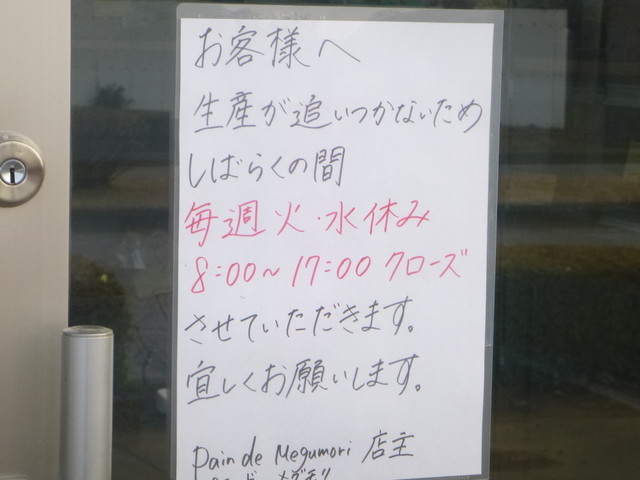 お客様へ
生産が追いつかないため
しばらくの間
毎週火・水休み
8:00~17:00クローズ
させていただきます。
宜しくお願いします。
Pain de Megumori 店主